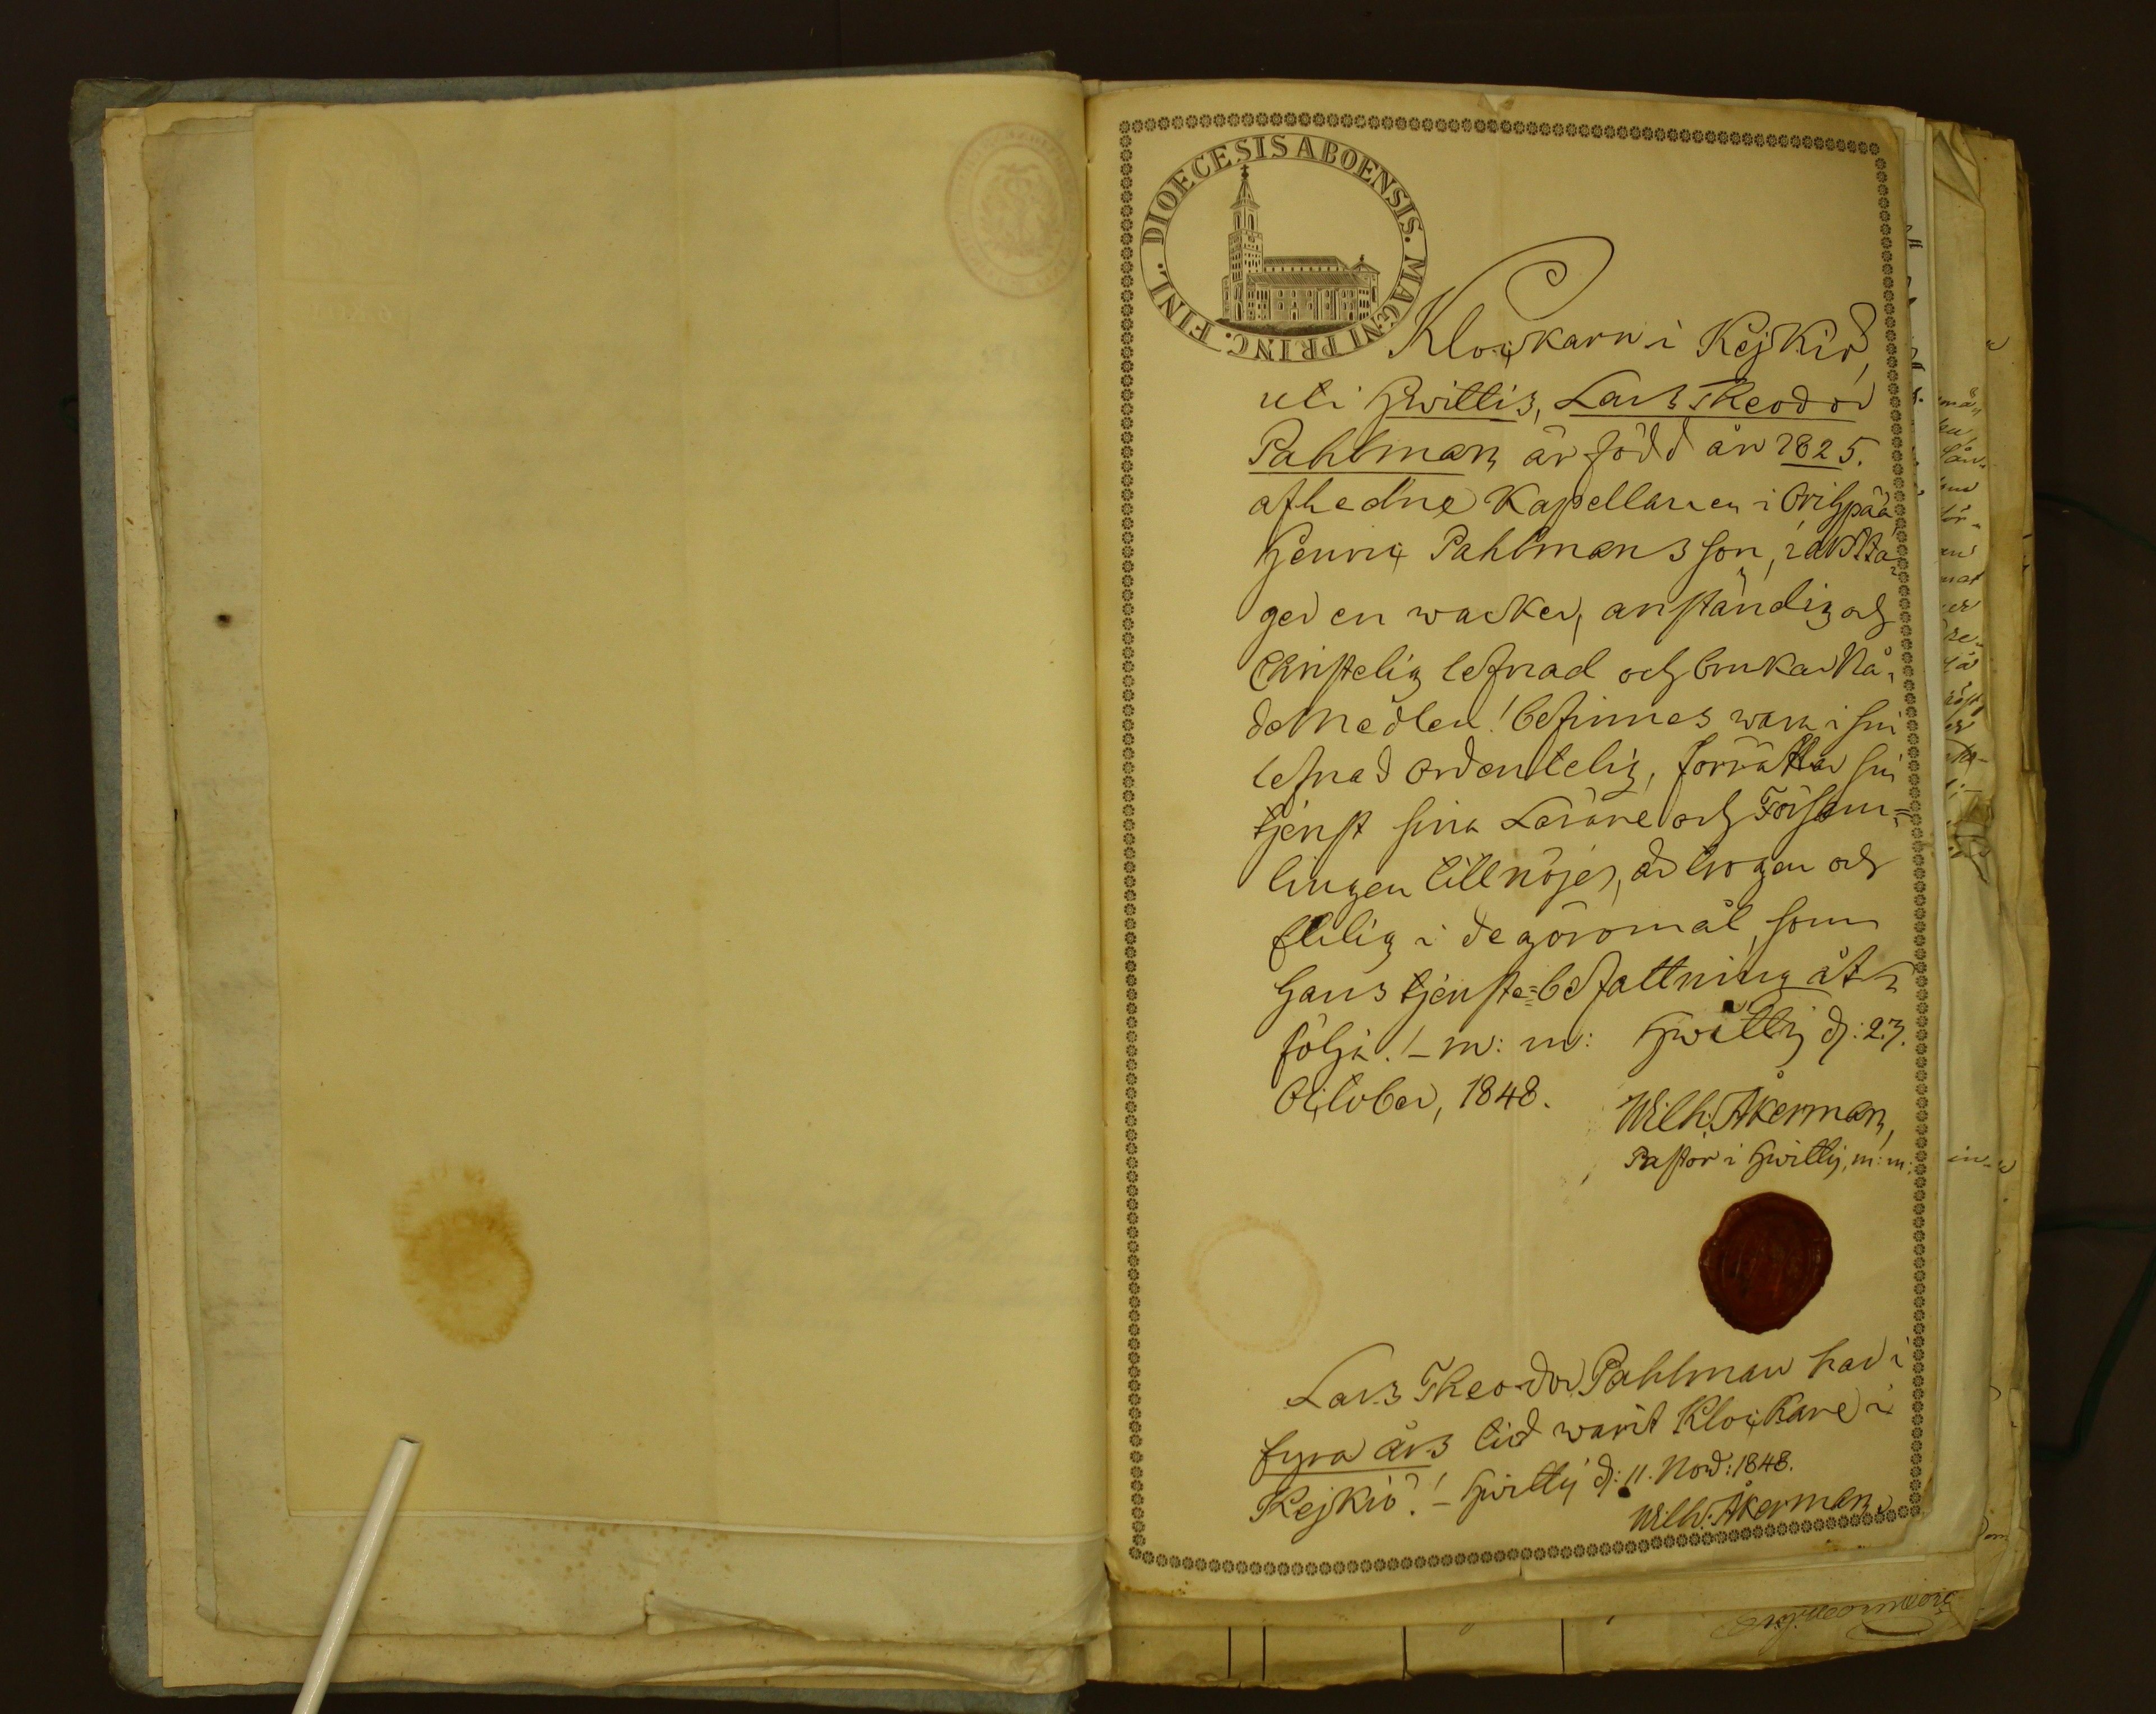 DIOECESIS ABOENSIS. MAGNI PRINC. FINL.
Klockarn i Kejkiö,
uti Hvittis, Lars Theodor
Pahlman, är född år 1825.
afledne Kapellanen i Oripää
Henric Pahlmans son, iakttа-
ger en wacker, anständig och
Christelig lefnad och brukar Nå-
deMedlen! befinnes wara i sin
lefnad ordentelig, förrättar sin
tjenst sina Lärare och Försam=
lingen till nöjes, är trogen och
flitig i de göromål, som
hans tjenste=befattning åt-
följa! – m: m: Hwittis d: 27.
October, 1848.
Wilh: Åkerman,
Pastor i Hwittis, m: m:
Lars Theodor Pahlman har i
fyra års tid warit Klockare i
Kejkiö! – Hwittis d: 11. Nov: 1848.
Wilh: Åkerman